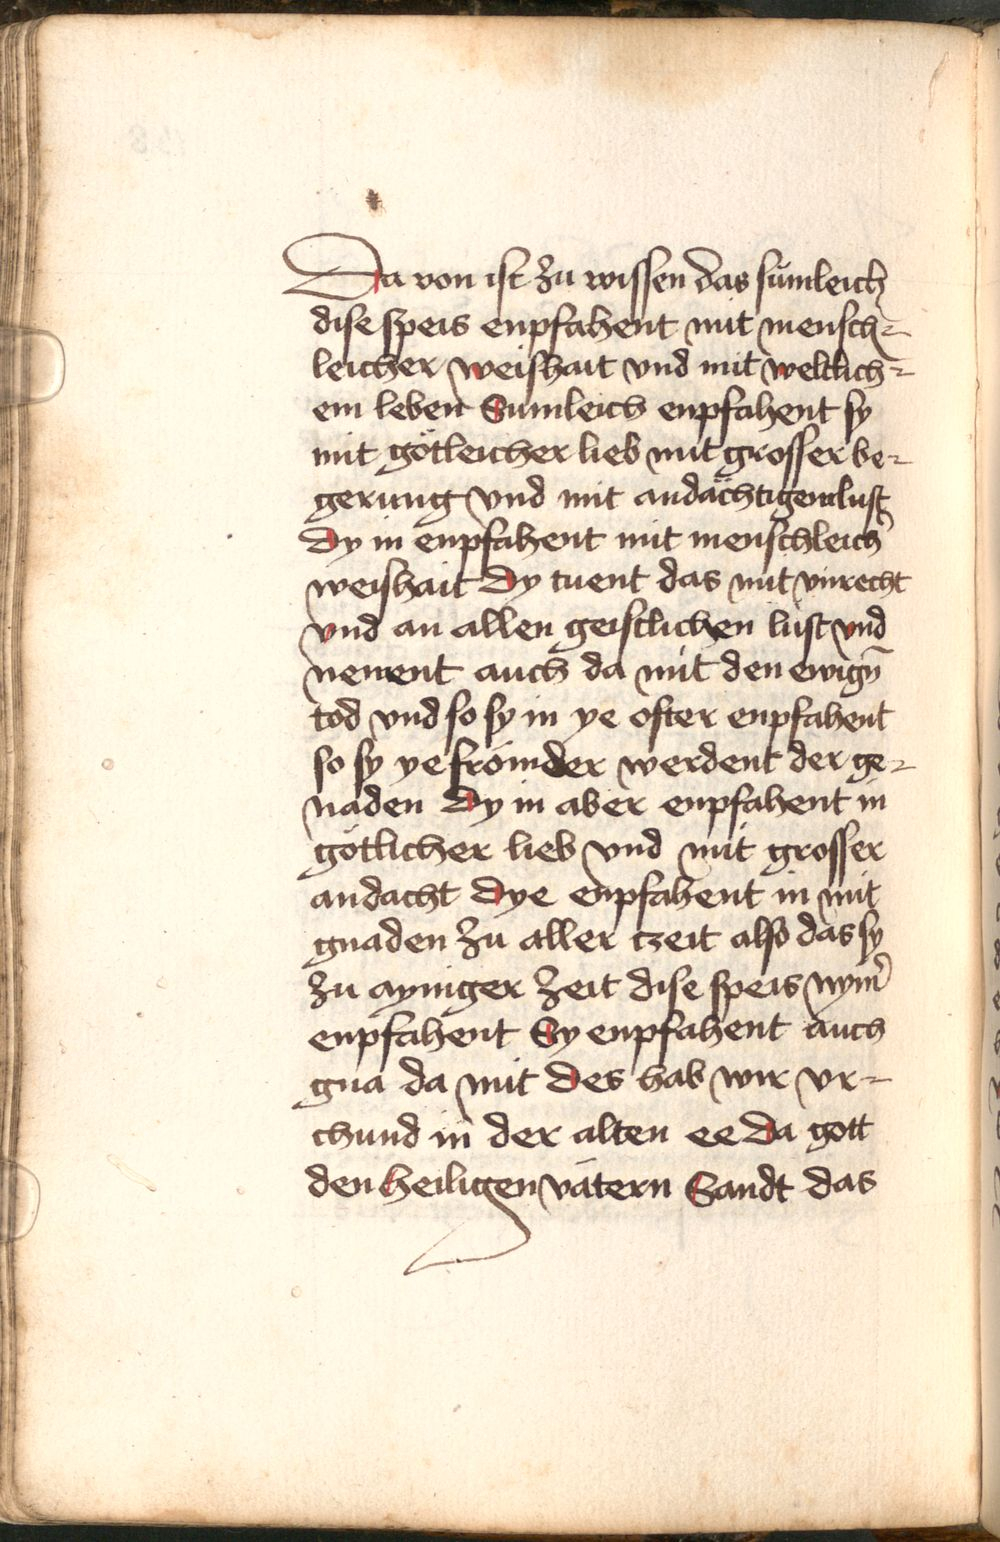 Da von ist zu wissen das sümleich
dise speis enpfahent mit mensch-
leicher weishait vnd mit weltlich-
em leben Sumleich enpfahent sy
mit götleicher lieb mit grosser be-
gerung vnd mit andächtigem lust
Dy in enpfahent mit menschleich̄
weishait Dy tuent das mit vnrecht
vnd an allen geistlichen lust vnd
nement auch da mit den ewign̄
tod vnd so sy in ye ofter enpfahent
so sy ye frömder werdent der ge-
naden Dy in aber enpfahent in
götlicher lieb vnd mit grosser
andacht Dye enpfahent in mit
gnaden zu aller tzeit also das sy
zu ayniger zeit dise speis nym̄
enpfahent Sy enpfahent auch
gna da mit Des hab wir vr-
chund in der alten ee Da gott
den heiligen vätern Sandt das